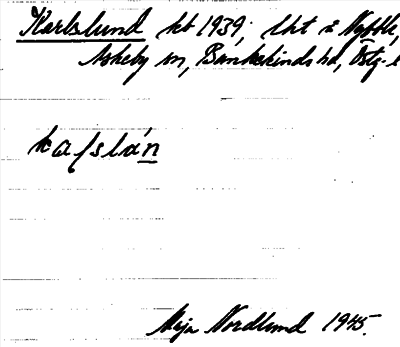 Karlslund kb 1939, lht t Nybble,
Askeby sn, Bankekinds hd, Östg.
kaɽslán
Maja Nordlund 1945.